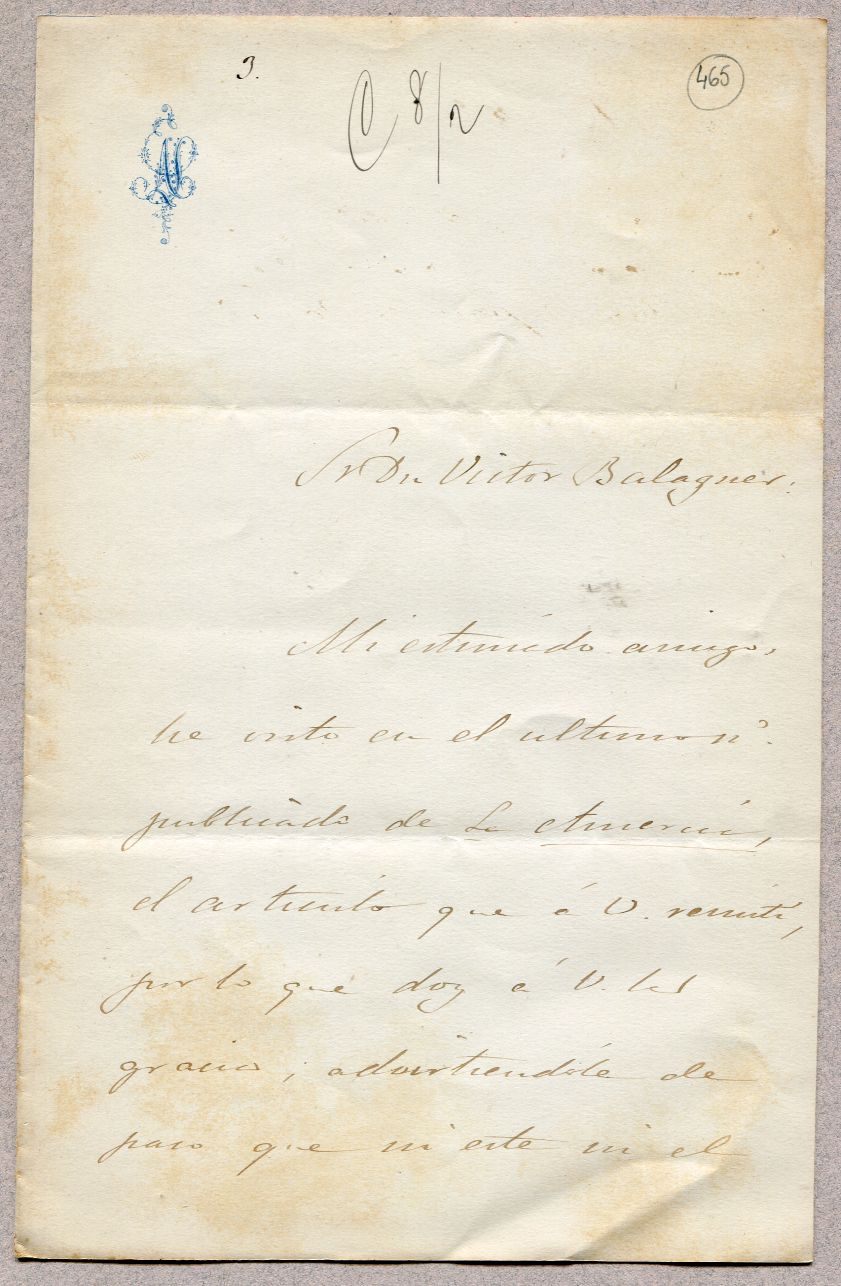 3.
C 8/2
465
Sr Dn Victor Balaguer.
Mi estimado amigo,
he visto en el ultimo nº.
publicado de La America,
el articulo que á V. remiti,
por lo que doy á V. las
gracias, advirtiendóle de
paso que ni este ni el